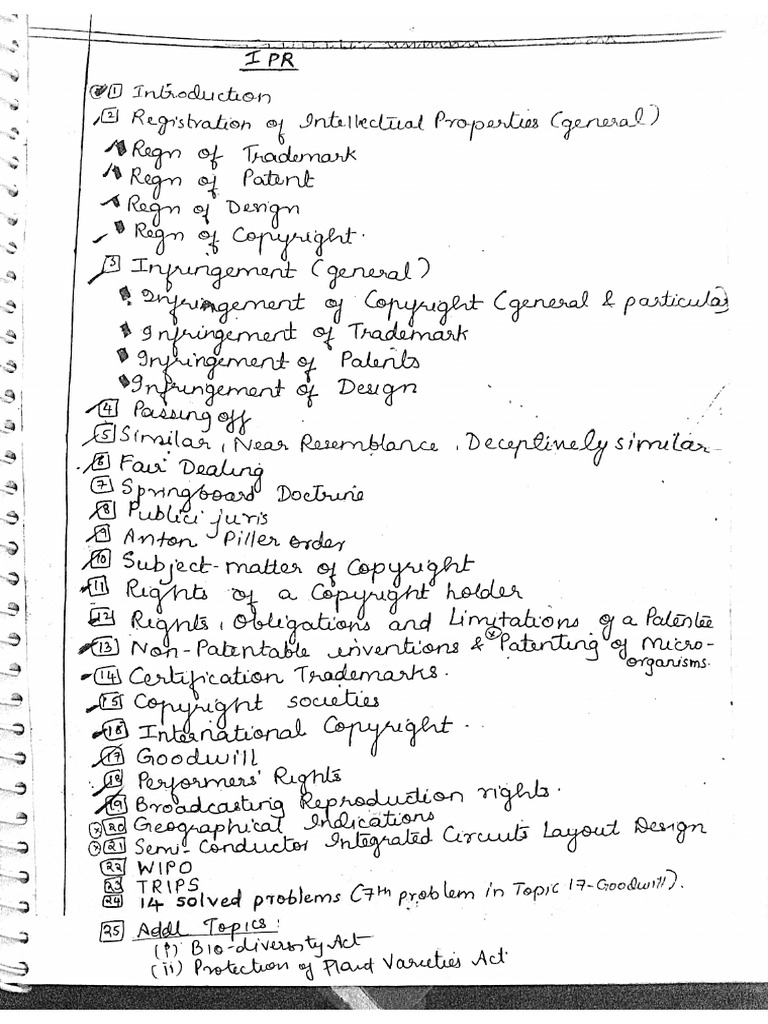 IPR
1 Introduction
2 Registration of Intellectual Properties (general)
Regn of Trademark
Regn of Patent
Regn of Design
Regn of Copyright.
3 Infringement (general)
Infringement of Copyright (general & particular)
Infringement of Trademark
Infringement of Patents
Infringement of Design
4 Passing off
5 Similar, Near Resemblance, Deceptively similar
6 Fair Dealing
7 Springboard Doctrine
8 Publici juris
9 Anton Piller order
10 Subject-matter of Copyright
11 Rights of a Copyright holder
12 Rights, Obligations and Limitations of a Patentee
13 Non-Patentable inventions & Patenting of Micro-
organisms.
14 Certification Trademarks.
15 Copyright societies
16 International Copyright.
17 Goodwill
18 Performers' Rights
19 Broadcasting Reproduction rights.
20 Geographical Indications
21 Semi-Conductor Integrated Circuits Layout Design
22 WIPO
23 TRIPS
24 14 solved problems (7th problem in Topic 17-Goodwill).
25 Addl Topics:
(i) Bio-diversity Act
(ii) Protection of Plant Varieties Act